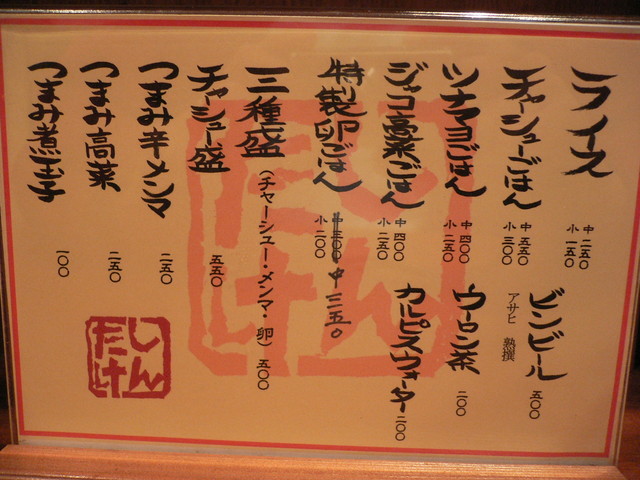 ライス
中 二五〇
小 一五〇
チャーシューごはん
中 五五〇
小 三〇〇
ツナマヨごはん
中 四〇〇
小 二五〇
ジャコ高菜ごはん
中 四〇〇
小 二五〇
特製卵ごはん
中 三〇〇 中 三五〇
小 二〇〇
三種盛
(チャーシュー・メンマ・卵) 五〇〇
チャーシュー盛
五五〇
つまみ辛メンマ
二五〇
つまみ高菜
二五〇
つまみ煮玉子
一〇〇
ビンビール
アサヒ 熟撰
五〇〇
ウーロン茶
二〇〇
カルピスウォーター
二〇〇
しん
たけ
しん
たけ